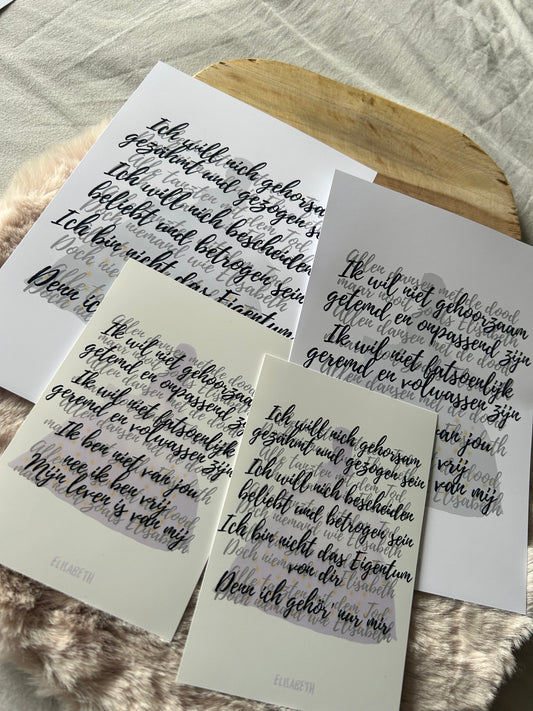 Ich will nich gehorsam
gezähmt und gezogen sein
Ich will nich bescheiden
beliebt und betrogen sein
Ich bin nicht das Eigentum
Denn ich
Alle tanzten mit dem Tod
Doch niemand wie Elisabeth
Allen dansen met de dood
maar noo zoals Elisabeth
Allen dansen met de dood
Ik wil niet gehoorzaam
getemd en onpassend zijn
Ik wil niet fatsoenlijk
geremd en volwassen zijn
van jou
vrij
van mij
Allen dansen met de dood
maar
Elisabeth
Allen dansen met de dood
Ik wil niet gehoorzaam
getemd en onpassend zijn
Ik wil niet fatsoenlijk
geremd en volwassen zijn
Ik ben niet van jou
nee ik ben vrij
Mijn leven is van mij
ELISABETH
Ich will nich gehorsam
gezähmt und gezogen sein
Ich will nich bescheiden
beliebt und betrogen sein
Ich bin nicht das Eigentum
von dir
Denn ich gehör' nur mir
Alle tanzten mit dem Tod
Doch niemand wie Elisabeth
Alle tanzten mit dem Tod
Doch niemand wie Elisabeth
ELISABETH